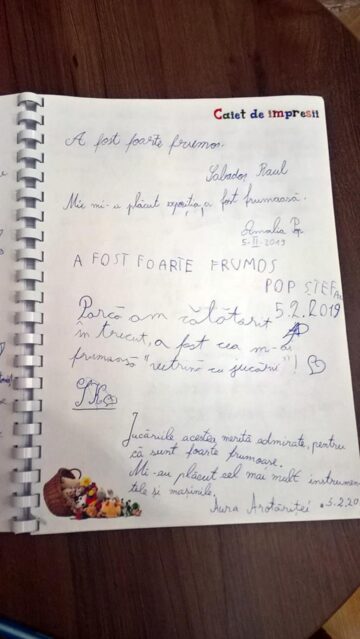 Caiet de impresii
A fost foarte frumos.
Sabadoş Raul
Mie mi-a plăcut expoziţia, a fost frumoasă.
Amalia Pop
5-II-2019
A FOST FOARTE FRUMOS
POP ŞTEFAN
5.2.2019
Parcă am călătorit
în trecut, a fost cea m-ai
frumoasă "vitrină cu jucării"!
Jucăriile acestea merită admirate, pentru
că sunt foarte frumoase.
Mi-au plăcut cel mai mult instrumen
tele şi maşinile.
Aura Arotăriţei 5.2.20